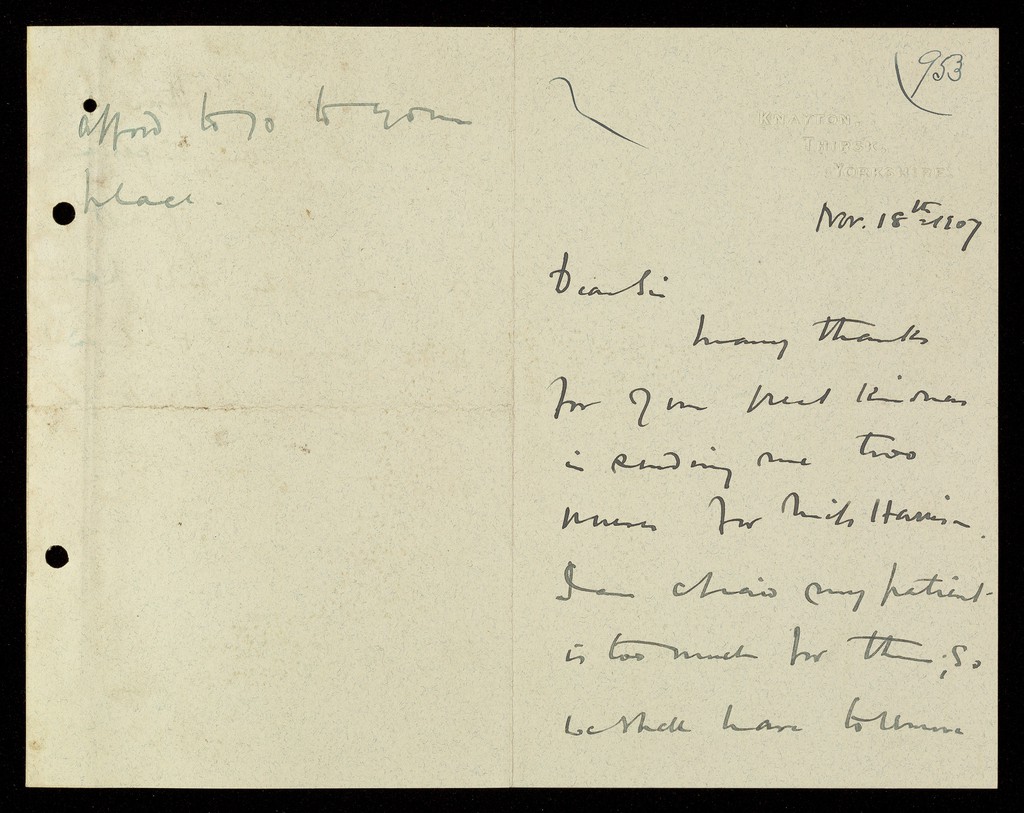 afford to go to your
place.
953
KNAYTON,
THIRSK,
YORKSHIRE.
Nov. 18th 1907
Dear Sir
Many thanks
for your great kindness
in sending me two
nurses for Miss Harrison.
I am afraid my patient
is too much for them, so
we shall have to remove